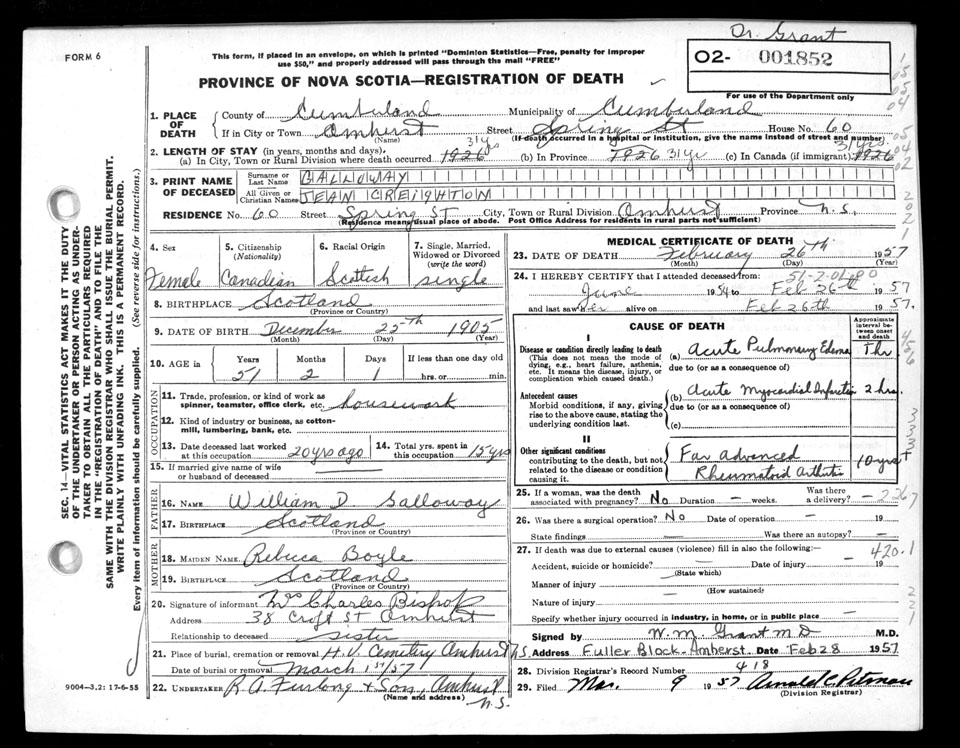 Dr. Grant
FORM 6
This form, if placed in an envelope, on which is printed "Dominion Statistics—Free, penalty for improper
use $50," and properly addressed will pass through the mail "FREE"
O2- 001852
For use of the Department only
PROVINCE OF NOVA SCOTIA—REGISTRATION OF DEATH
1. PLACE OF DEATH
County of Cumberland Municipality of Cumberland
If in City or Town Amherst Street Spring St House No. 60
(Name) (If death occurred in a hospital or institution, give the name instead of street and number)
2. LENGTH OF STAY (in years, months and days).
(a) In City, Town or Rural Division where death occurred 1926 31 yrs (b) In Province 1926 31 yr (c) In Canada (if immigrant) 1926 31 yrs
3. PRINT NAME OF DECEASED
Surname or Last Name GALLOWAY
All Given or Christian Names JEAN CREIGHTON
RESIDENCE No. 60 Street Spring St City, Town or Rural Division Amherst Province N.S.
(Residence means usual place of abode. Post Office Address for residents in rural parts not sufficient)
4. Sex
Female
5. Citizenship (Nationality)
Canadian
6. Racial Origin
Scottish
7. Single, Married, Widowed or Divorced (write the word)
single
8. BIRTHPLACE Scotland
(Province or Country)
9. DATE OF BIRTH December 25th 1905
(Month) (Day) (Year)
10. AGE in Years Months Days If less than one day old
51 2 1 hrs. or min.
OCCUPATION
11. Trade, profession, or kind of work as
spinner, teamster, office clerk, etc. housework
12. Kind of industry or business, as cotton-
mill, lumbering, bank, etc.
13. Date deceased last worked
at this occupation 20 yrs ago
14. Total yrs. spent in
this occupation 15 yrs
15. If married give name of wife
or husband of deceased
FATHER
16. NAME William D Galloway
17. BIRTHPLACE Scotland
(Province or Country)
MOTHER
18. MAIDEN NAME Rebecca Boyle
19. BIRTHPLACE Scotland
(Province or Country)
20. Signature of informant Mrs Charles Bishop
Address 38 Croft St Amherst
Relationship to deceased sister
21. Place of burial, cremation or removal H.V. Cemetery Amherst N.S.
Date of burial or removal March 1st/57
22. UNDERTAKER R A Furlong & Son, Amherst
(Name and address) N.S.
MEDICAL CERTIFICATE OF DEATH
23. DATE OF DEATH February 26th 1957
(Month) (Day) (Year)
24. I HEREBY CERTIFY that I attended deceased from:
June 1954 to Feb 26th 1957
and last saw her alive on Feb 26th 1957.
CAUSE OF DEATH
Approximate interval between onset and death
I
Disease or condition directly leading to death
(This does not mean the mode of
dying, e.g., heart failure, asthenia,
etc. It means the disease, injury, or
complication which caused death.)
(a) Acute Pulmonary Edema 1 hr.
due to (or as a consequence of)
Antecedent causes
Morbid conditions, if any, giving
rise to the above cause, stating the
underlying condition last.
(b) Acute Myocardial Infarction 2 hrs.
due to (or as a consequence of)
(c)
II
Other significant conditions
contributing to the death, but not
related to the disease or condition
causing it.
Far advanced
Rheumatoid Arthritis 10 yrs +
25. If a woman, was the death
associated with pregnancy? No Duration — weeks. Was there a delivery? —
26. Was there a surgical operation? No Date of operation — 19
State findings — Was there an autopsy? —
27. If death was due to external causes (violence) fill in also the following:—
Accident, suicide or homicide? — Date of injury — 19
(State which)
Manner of injury —
(How sustained)
Nature of injury —
Specify whether injury occurred in industry, in home, or in public place —
420.1
Signed by W. M. Grant M D M.D.
Address Fuller Block - Amherst Date Feb 28 1957
28. Division Registrar's Record Number 418
29. Filed Mar. 9 1957 Arnold C Peterson
(Division Registrar)
SEC. 14—VITAL STATISTICS ACT MAKES IT THE DUTY
OF THE UNDERTAKER OR PERSON ACTING AS UNDER-
TAKER TO OBTAIN ALL THE PARTICULARS REQUIRED
IN THE "REGISTRATION OF DEATH" AND TO FILE THE
SAME WITH THE DIVISION REGISTRAR WHO SHALL ISSUE THE BURIAL PERMIT.
WRITE PLAINLY WITH UNFADING INK. THIS IS A PERMANENT RECORD.
Every item of information should be carefully supplied. (See reverse side for instructions.)
9004-3,2: 17-6-55